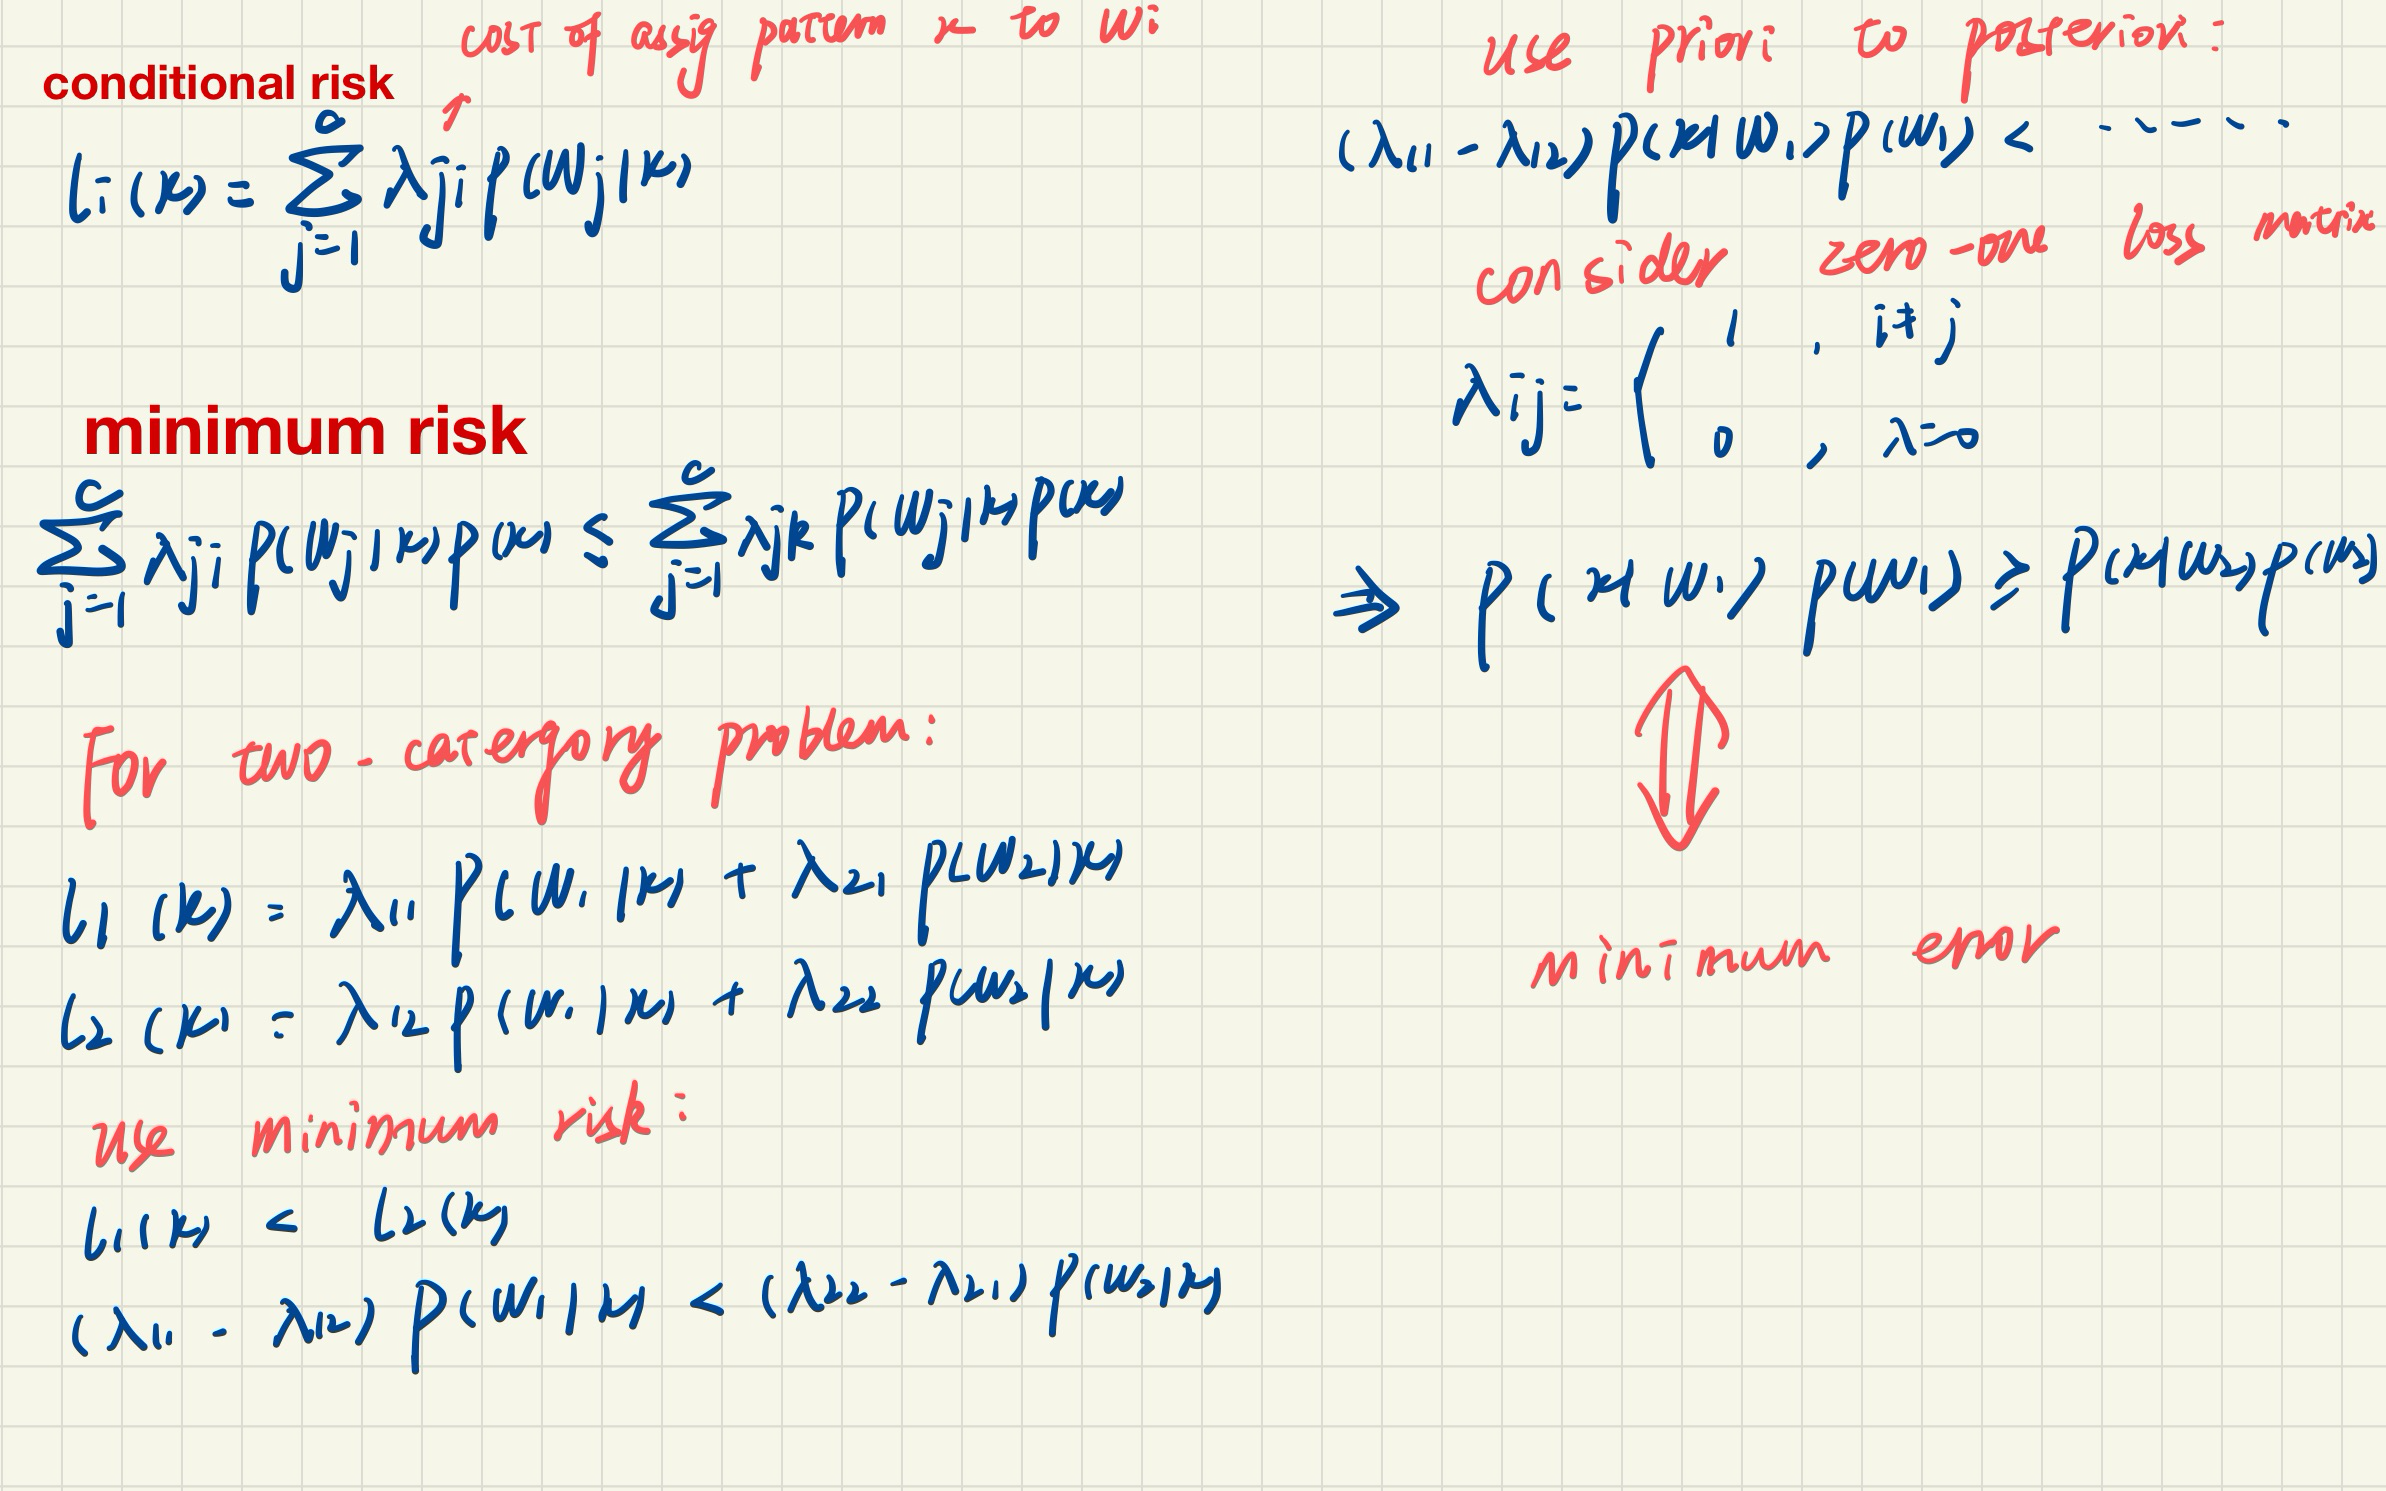 cost of assig pattern x to wi
conditional risk
li(x) = ∑_{j=1}^{c} λji p(wj|x)
minimum risk
∑_{j=1}^{c} λji p(wj|x) p(x) ≤ ∑_{j=1}^{c} λjk p(wj|x) p(x)
For two-catergory problem:
l1(x) = λ11 p(w1|x) + λ21 p(w2|x)
l2(x) = λ12 p(w1|x) + λ22 p(w2|x)
use minimum risk:
l1(x) < l2(x)
(λ11 - λ12) p(w1|x) < (λ22 - λ21) p(w2|x)
use priori to posteriori:
(λ11 - λ12) p(x|w1) p(w1) < ------
consider zero-one loss matrix
λij = { 1 , i≠j
0 , λ=0
⇒ p(x|w1) p(w1) ≥ p(x|w2) p(w2)
minimum error